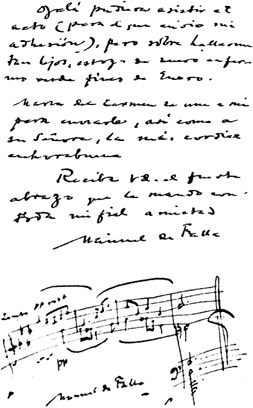 Ojalá pudiera asistir al
acto (para el que envío mi
adhesión), pero sobre hallarme
tan lejos, estoy de nuevo enfer-
mo desde fines de Enero.
María del Carmen se une a mí
para enviarle, así como a
su Señora, la más cordial
enhorabuena
Reciba Vd. el fuerte
abrazo que le manda con
toda mi fiel amistad
Manuel de Falla
pp
Manuel de Falla